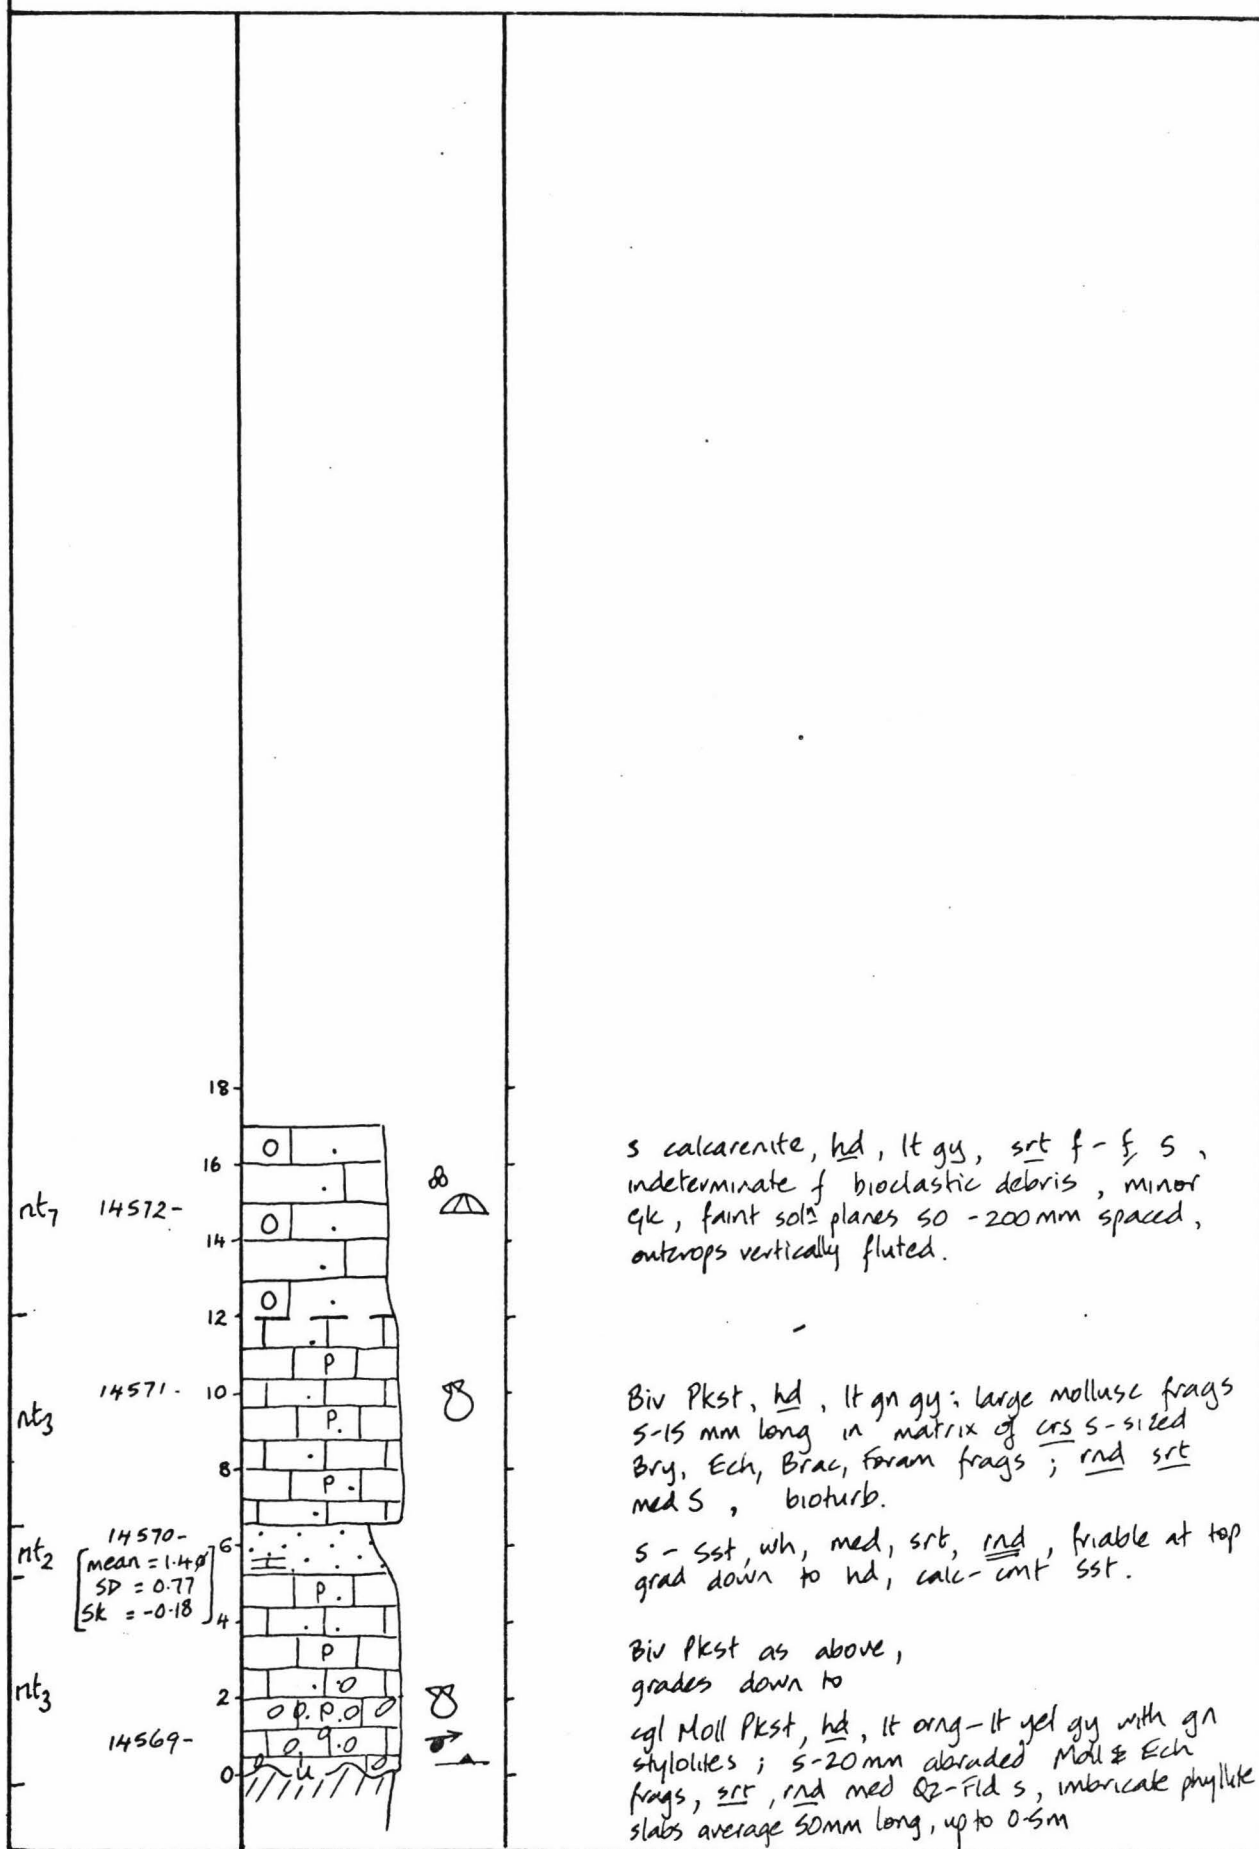 18
16
14
12
10
8
6
4
2
0
nt7 14572-
14571-
nt3
14570-
nt2
[mean = 1.4ø
SD = 0.77
Sk = -0.18]
nt3
14569-
O .
.
O .
.
O .
.
P
.
P.
.
P .
.
P .
. .
P
. . o
O P. P. O O
O 9. O
u
s calcarenite, hd, lt gy, srt f - f, s,
indeterminate f bioclastic debris, minor
gk, faint solⁿ planes 50 - 200mm spaced,
outcrops vertically fluted.
Biv Pkst, hd, lt gn gy: large mollusc frags
5-15 mm long in matrix of crs s-sized
Bry, Ech, Brac, Foram frags; rnd srt
med s, bioturb.
s - sst, wh, med, srt, rnd, friable at top
grad down to hd, calc-cmt sst.
Biv Pkst as above,
grades down to
cgl Moll Pkst, hd, lt orng-lt yel gy with gn
stylolites; 5-20mm abraded Moll & Ech
frags, srt, rnd med Qz-Fld s, imbricate phyllite
slabs average 50mm long, up to 0.5m